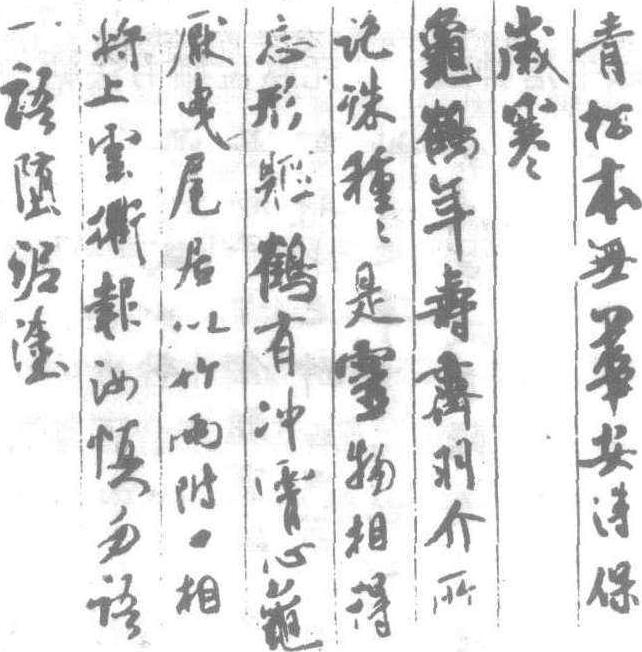 青松本無華安得保
歲寒
龜鶴年壽齊羽介所
託殊種種是靈物相得
忘形軀鶴有冲霄心龜
厭曳尾居以竹兩附口相
將上雲衢報汝慎勿語
一語墮泥塗